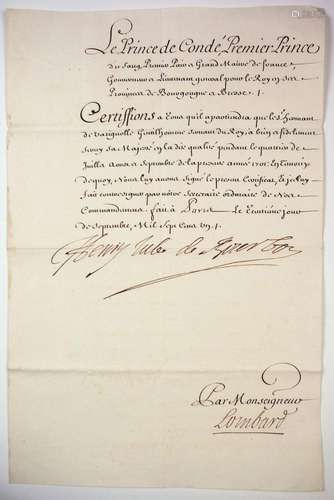 Le Prince de Condé, Premier Prince
du Sang Premier Pair et Grand Maitre de france
Gouverneur et Lieutenant general pour le Roy en ses
Provinces de Bourgongne et Bresse
Certiffions a tous qu'il apartiendra que les
de Varignolle Gentilhomme servant du Roy, a bien et fidelement
servy sa Majesté en la dite qualité pendant le quartier de
Juillet Aoust et Septembre de la presente année 1701. En temoin
dequoy, Nous luy avons signé le present Certificat, et a celuy
fait contresigner par nôtre Secretaire ordinaire de Nos
Commandemens, fait à Paris Le Trentième jour
de Septembre, Mil Sept Cens un
Henry Jules de Bourbon
Par Monseigneur
Lombard